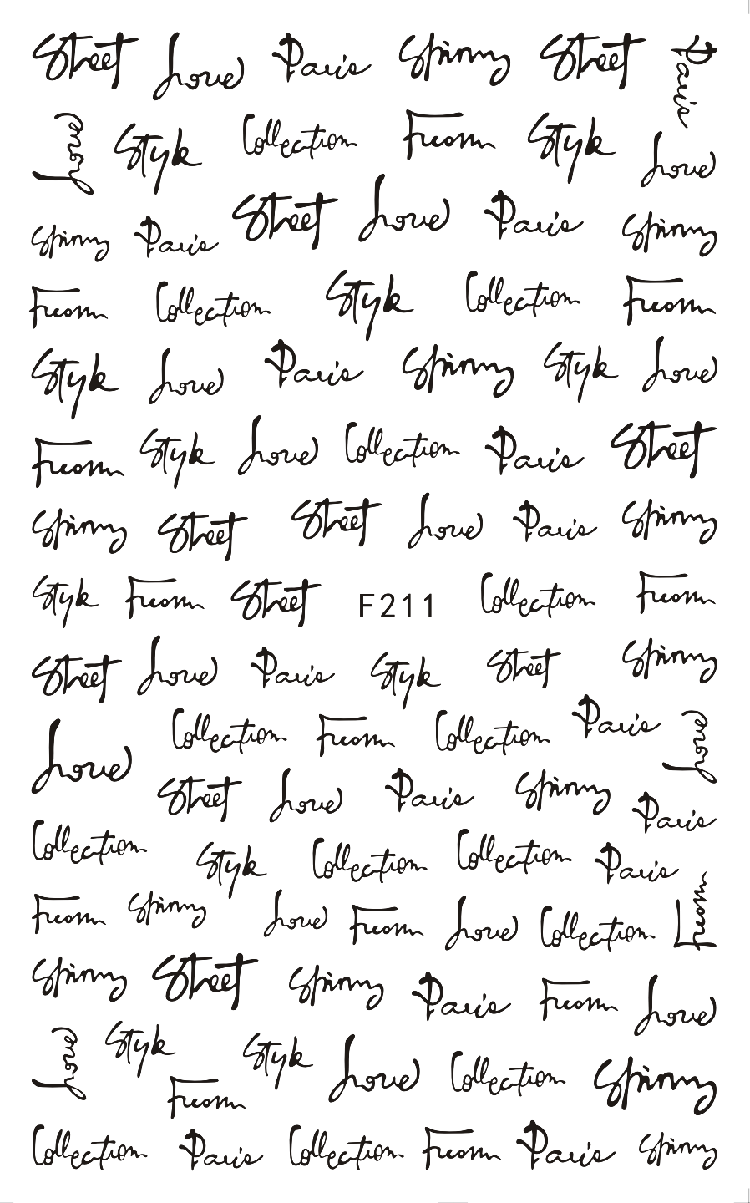 Street Love Paris Spinny Street Paris
Love Style Collection From Style Love
Spinny Paris Street Love Paris Spinny
From Collection Style Collection From
Style Love Paris Spinny Style Love
From Style Love Collection Paris Street
Spinny Street Street Love Paris Spinny
Style From Street F211 Collection From
Street Love Paris Style Street Spinny
Love Collection From Collection Paris Love
Street Love Paris Spinny Paris
Collection Style Collection Collection Paris
From Spinny Love From Love Collection From
Spinny Street Spinny Paris From Love
Love Style Style Love Collection Spinny
From
Collection Paris Collection From Paris Spinny